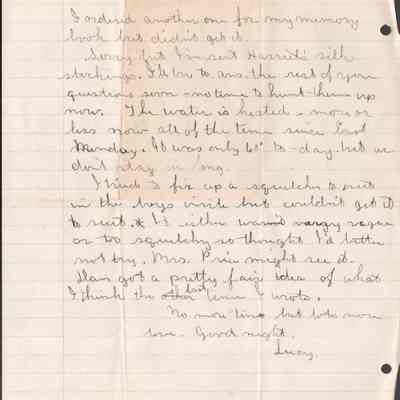 I ordered another one for my memory
book but didn't get it.
Sorry but I'm sent Harriet's silk
stockings. I'll try to ans. the rest of your
questions soon – no time to hunt them up
now. The water is heated – more or
less now all of the time since last
Monday. It was only 60° to-day but we
don't stay in long.
I tried to fix up a squelcher to
in the boys visit but couldn't get it
to suit. It either was
or too squelchy so thought I'd better
not try. Mrs. might see it.
Han got a pretty fair idea of what
I think the other last time I wrote.
No more time but lots more
love. Good night.
Lucy.